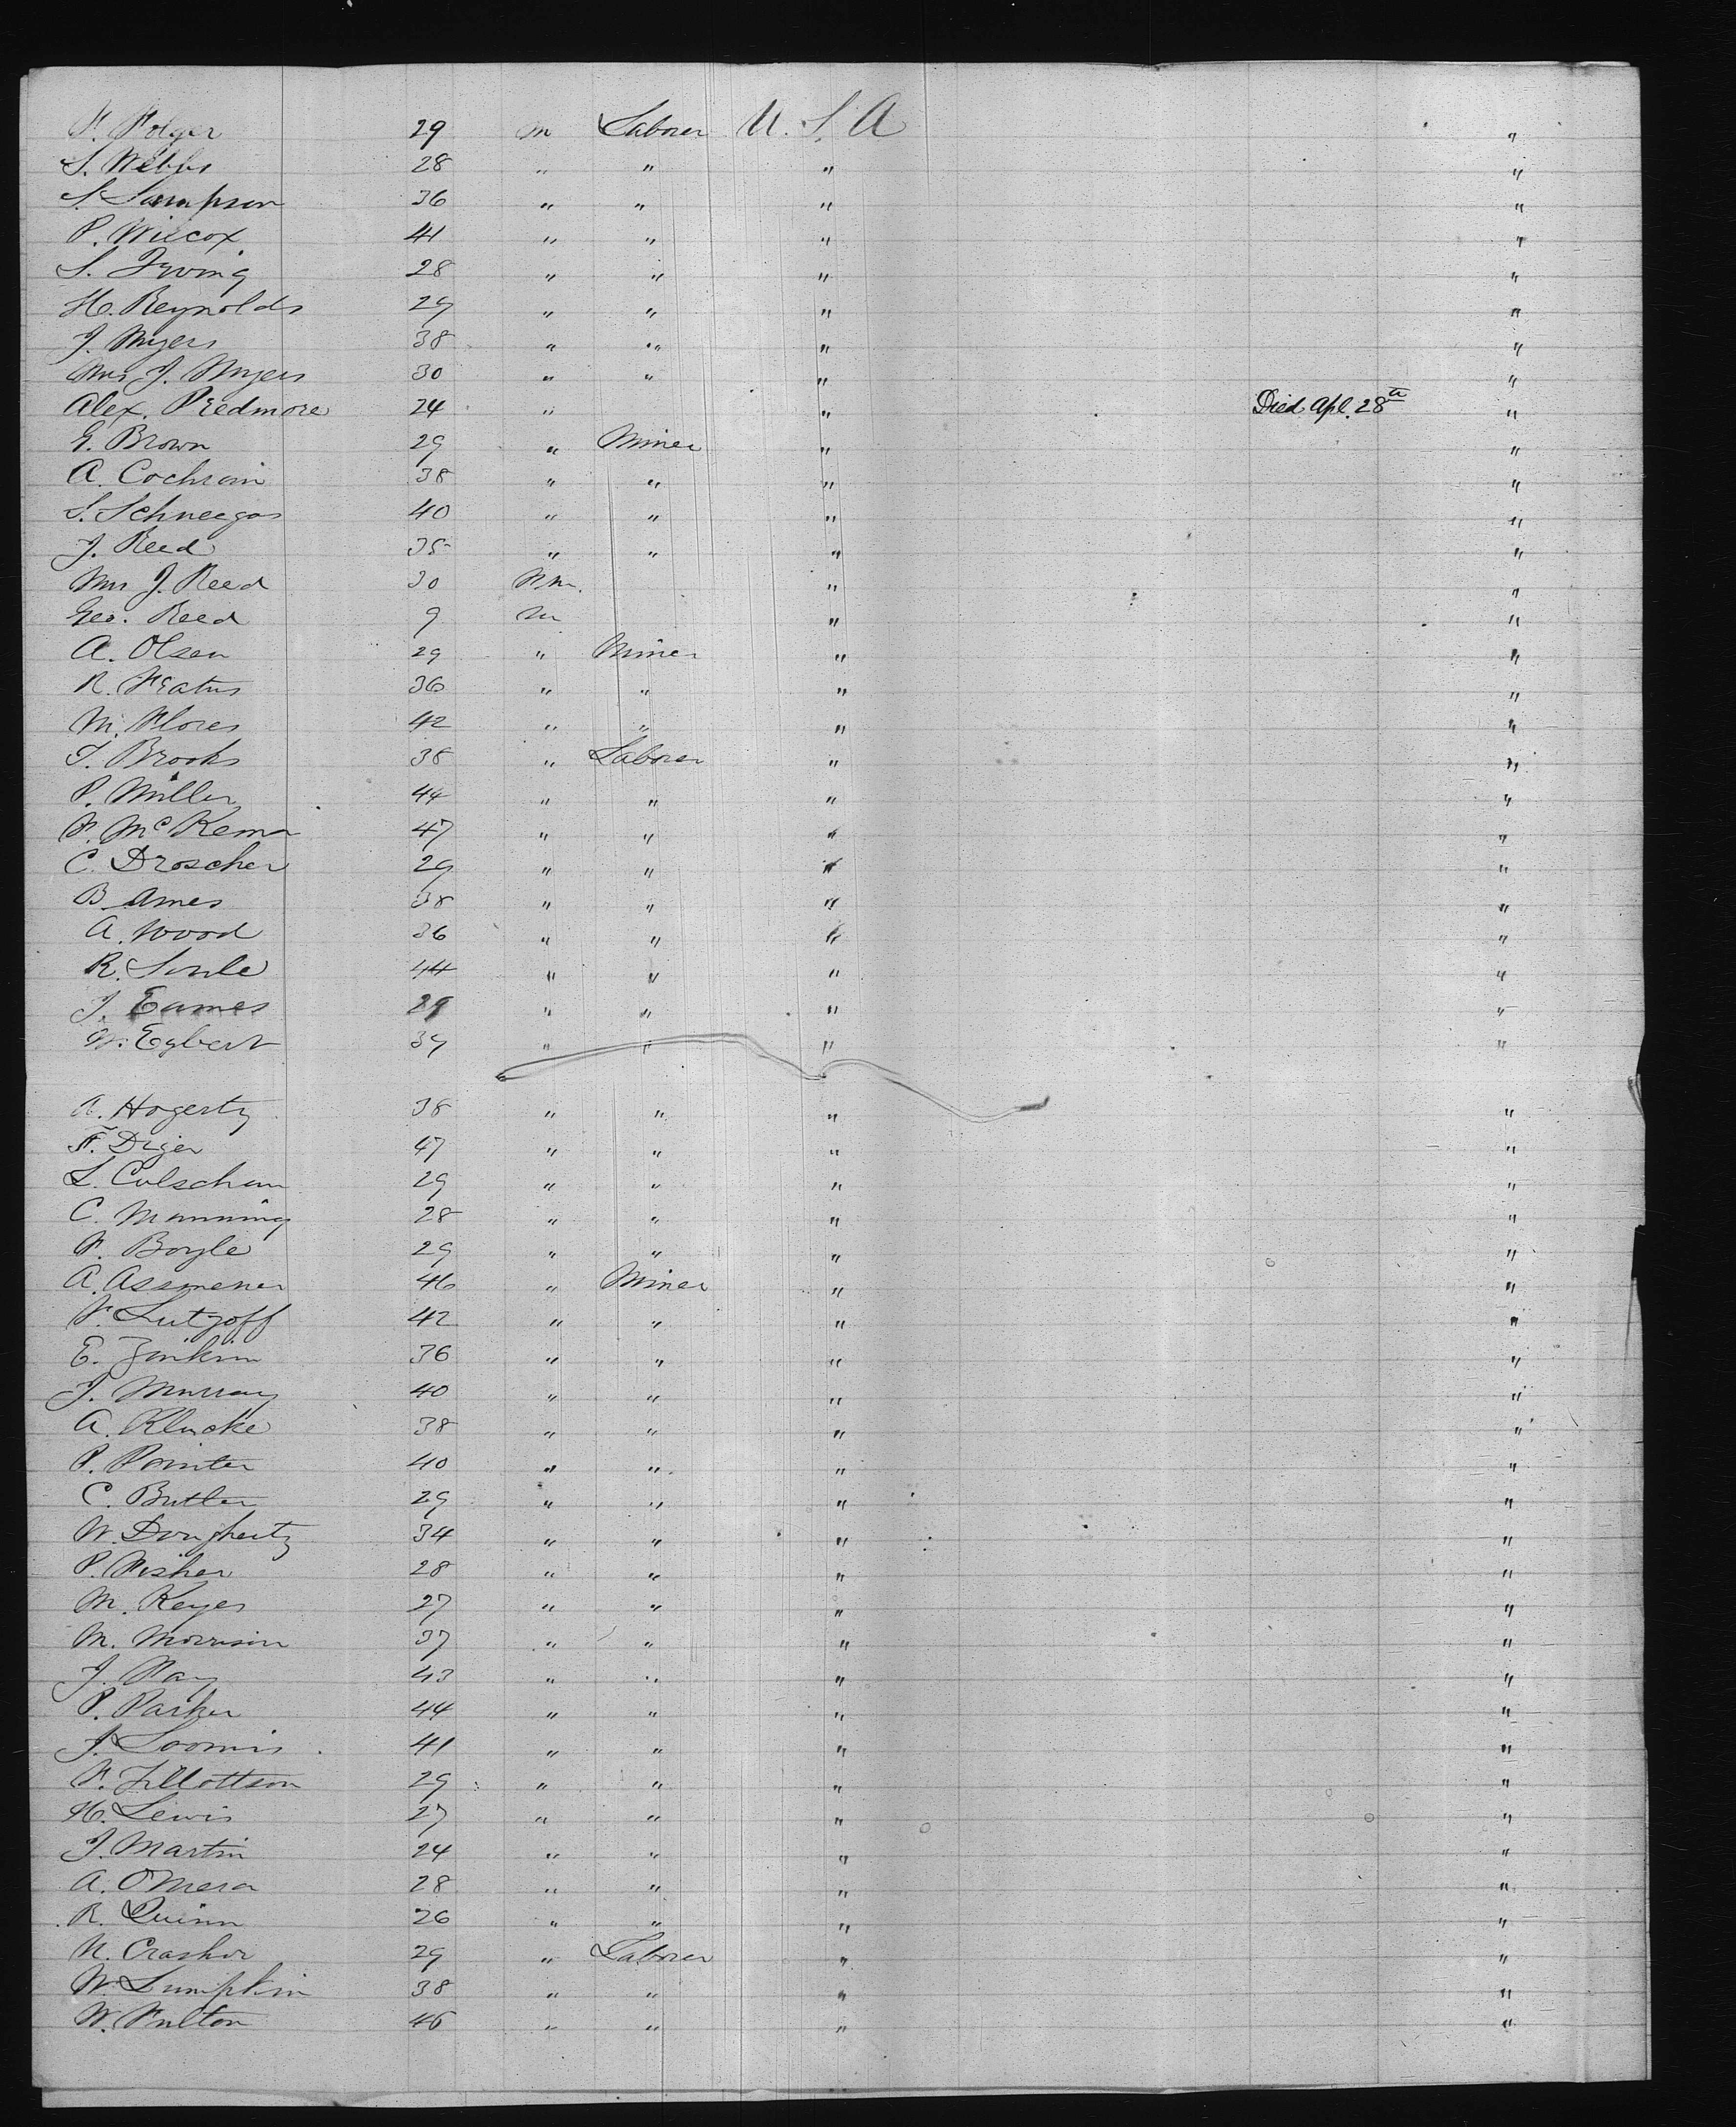 F. Folger 29 m Laborer U.S.A "
S. Webbs 28 " " " "
S. Sampson 36 " " " "
P. Wilcox 41 " " " "
S. Irving 28 " " " "
H. Reynolds 29 " " " "
J. Myers 38 " " " "
Mrs J. Myers 30 " " " "
Alex. Predmore 24 " " Died Apl. 28th "
G. Brown 29 " Miner " "
A. Cochrain 38 " " " "
S. Schneegas 40 " " " "
J. Reed 35 " " " "
Mrs J. Reed 30 " "
Geo. Reed 9 m " "
A. Olsen 29 " Miner " "
R. 36 " " " "
M. Flores 42 " " " "
T. Brooks 38 " Laborer " "
P. Miller 44 " " " "
F. McKenna 47 " " " "
C. Droscher 29 " " " "
B. Ames 38 " " " "
A. Wood 36 " " " "
R. Soule 44 " " " "
J. Eames 29 " " " "
M. Egbert 37 " " " "
A. Hogerty 38 " " " "
F. Diger 47 " " " "
L. 29 " " " "
C. Manning 28 " " " "
F. Boyle 29 " " " "
A. Assmener 46 " Miner " "
F. Lutzoff 42 " " " "
E. Jinkin 36 " " " "
J. Murray 40 " " " "
A. Klucke 38 " " " "
P. Pointer 40 " " " "
C. Butler 29 " " " "
W. Dougherty 34 " " " "
P. Fisher 28 " " " "
M. Keyes 27 " " " "
M. Morrison 37 " " " "
J. Fay 43 " " " "
P. Parker 44 " " " "
J. Loomis 41 " " " "
F. Tillottson 29 " " " "
H. Lewis 27 " " " "
J. Martin 24 " " " "
A. O'Mera 28 " " " "
R. Quinn 26 " " " "
N. Crasher 29 " Laborer " "
W. Lumpkin 38 " " " "
W. Fulton 46 " " " "